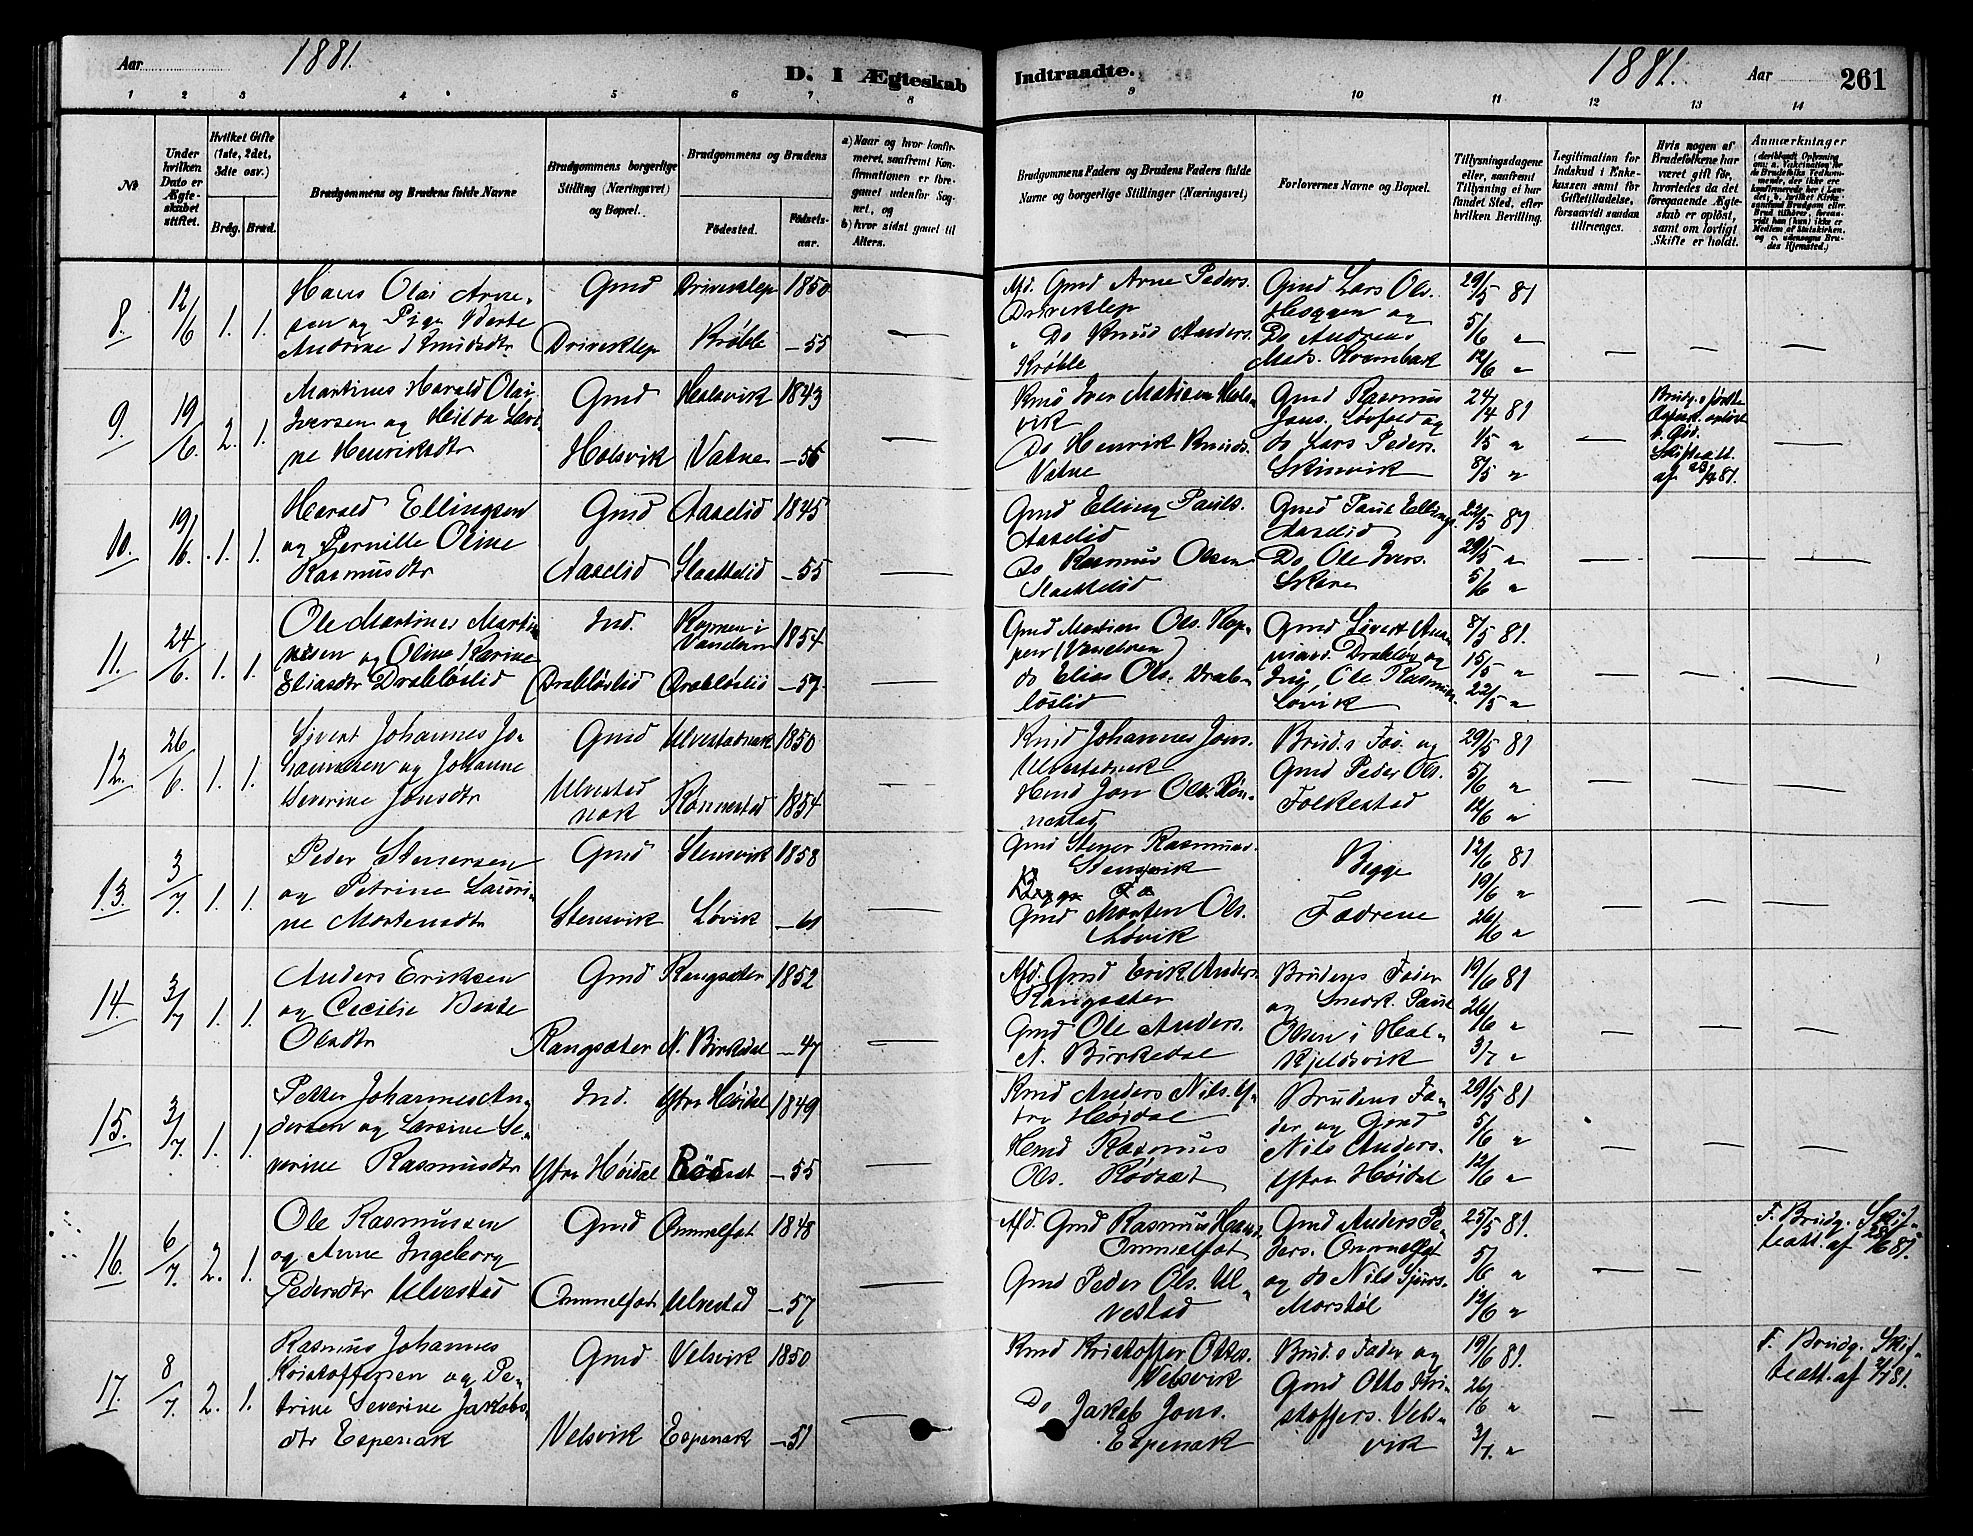 Aar 1881.
D. I Ægteskab
Indtraadte.
1881. Aar 261
1 2 3 4 5 6 7 8
9 10 11 12 13 14
№
Under hvilken Dato er Ægteskabet stiftet.
Hvilket Gifte (1ste, 2det, 3die osv.)
Brdg. Brud.
Brudgommens og Brudens fulde Navne
Brudgommens borgerlige Stilling (Næringsvei) og Bopæl.
Brudgommens og Brudens
Fødested.
Fødselsaar.
a) Naar og hvor konfirmeret, saafremt Konfirmationen er foregaaet udenfor Sognet, og
b) hvor sidst gaaet til Alters.
Brudgommens Faders og Brudens Faders fulde Navne og borgerlige Stillinger (Næringsvei)
Forlovernes Navne og Bopæl.
Tillysningsdagene eller, saafremt Tillysning ei har fundet Sted, efter hvilken Bevilling.
Legitimation for Indskud i Enkekassen samt for Giftetilladelse, forsaavidt saadan tiltrænges.
Hvis nogen af Brudefolkene har været gift før, hvorledes da det foregaaende Ægteskab er opløst, samt om lovligt Skifte er holdt.
Anmærkninger
8. 12/6 1. 1.
Hans Olai Arne-
sen og Pige Berte
Andrine Knudsdtr
Gmd
Driveklep
Driveklep 1850
Krøble —55
Afd. Gmd Arne Peders.
Driveklep
" Do Knud Anders.
Krøble
Gmd Lars Ols.
Hesguen og
Do Andreas
Mads. Krumbak
29/5 81
5/6 "
12/6 "
9. 19/6. 2. 1.
Martines Harald Olai
Iversen og Hilda Lovi-
ne Henriksdtr
Gmd
Halsvik
Halsvik 1843
Vatne —56
Kmd Iver Matisen Hals-
vik
Do Henrik Knuds.
Vatne
Gmd Rasmus
Jons. Løvfold og
do Lars Peders.
Skinsvik
24/4 81
1/5 "
8/5 "
Brudg. s første
Ægtesk. opløst
v. Død.
Skifteatt.
af 23/4 81.
10. 19/6 1. 1.
Harald Ellingsen
og Pernille Oline
Rasmusdtr
Gmd
Aaselid
Aaselid 1845
Slaattelid —55
Gmd Elling Pauls.
Aaselid
Do Rasmus Olsen
Slaattelid
Gmd Paul Ellings.
Aaselid
Do Ole Ivers.
Skare
22/5 81
29/5 "
5/6 "
11. 24/6. 1. 1.
Ole Martines Marti-
nisen og Oline Karine
Eliasdtr Drabløslid
Ind.
Drabløslid
Koppen i
Vanelven 1854
Drabløslid —57.
Gmd Martines Ols. Kop-
pen (Vanelven)
do Elias Ols. Drab-
løslid
Gmd Sivert Aas-
mund. Drabløs og
Ing. Ole Rasmus.
Løvik
8/5 81.
15/5 "
22/5 "
12. 26/6. 1. 1.
Sivert Johannes Jo-
hannesen og Johanne
Severine Jonsdtr
Gmd
Ulvestad
nak
Ulvestadnak 1850
Rønnestad 1854
Kmd Johannes Jons.
Ulvestadnak
Hmd Jon Ols. Røn-
nestad
Brud. s Fad. og
Gmd Peder Ols.
Folkestad
29/5 81
5/6 "
12/6 "
13. 3/7. 1. 1.
Peder Stenersen
og Petrine Lauri-
ne Mortensdtr
Gmd
Stensvik
Stensvik 1858
Løvik —61
Gmd Stener Rasmuss.
Stensvik
Gmd Morten Ols.
Løvik
Begge
Fædrene
12/6 81
19/6 "
26/6 "
14. 3/7 1. 1.
Anders Eriksen
og Cecilie Berte
Olsdtr
Gmd
Rangsæter
Rangsæter 1852
N. Birkedal —47
Afd. Gmd Erik Anders.
Rangsæter
Gmd Ole Anders.
N. Birkedal
Brudens Fader
og Snedk. Paul
Olsen i Hal-
kjeldsvik
19/6 81
26/6 "
3/7 "
15. 3/7 1. 1.
Petter Johannes An-
dersen og Larsine Se-
verine Rasmusdtr
Ind.
Ytre Høidal
Ytre Høidal 1849
Rödsæt —55
Kmd Anders Nils. Y-
tre Høidal
Hmd Rasmus
Ols. Rødsæt
Brudens Fa-
der og Gmd
Nils Anders.
Ytre Høidal
29/5 81
5/6 "
12/6 "
16. 6/7. 2. 1.
Ole Rasmussen
og Anne Ingeborg
Pedersdtr Ulvestad
Gmd
Ommelfot
Ommelfot 1848
Ulvestad —57
Afd. Gmd Rasmus Hans.
Ommelfot
Gmd Peder Ols. Ul-
vestad
Gmd Anders Pe-
ders. Ommelfot
og do Nils Sjurs.
Morstøl
25/5 81.
5/6 "
12/6 "
F. Brudg. Skif-
teatt. af 28/6 81.
17. 8/7. 2. 1.
Rasmus Johannes
Kristoffersen og Pe-
trine Severine Jakobs-
dtr Espenak
Gmd
Velsvik
Velsvik 1850
Espenak —51
Kmd Kristoffer Ottos.
Velsvik
Do Jakob Jons.
Espenak
Brud. s Fader og
Gmd Otto Kri-
stoffers. Vels-
vik
19/6 81.
26/6 "
3/7. "
F. Brudg. Skif-
teatt. af 2/7 81.